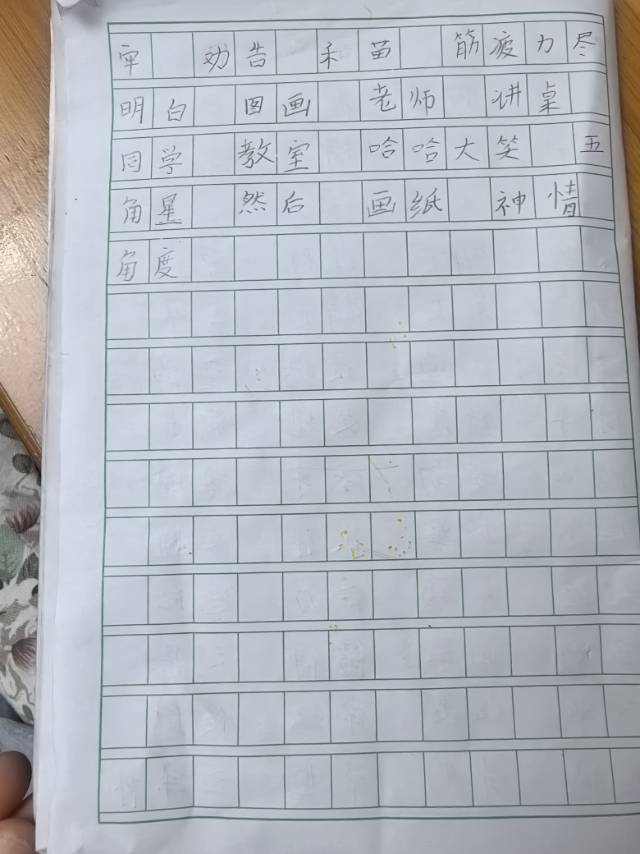 牢 劝告 禾苗 筋疲力尽
明白 图画 老师 讲桌
同学 教室 哈哈大笑 五
角星 然后 画纸 神情
角度